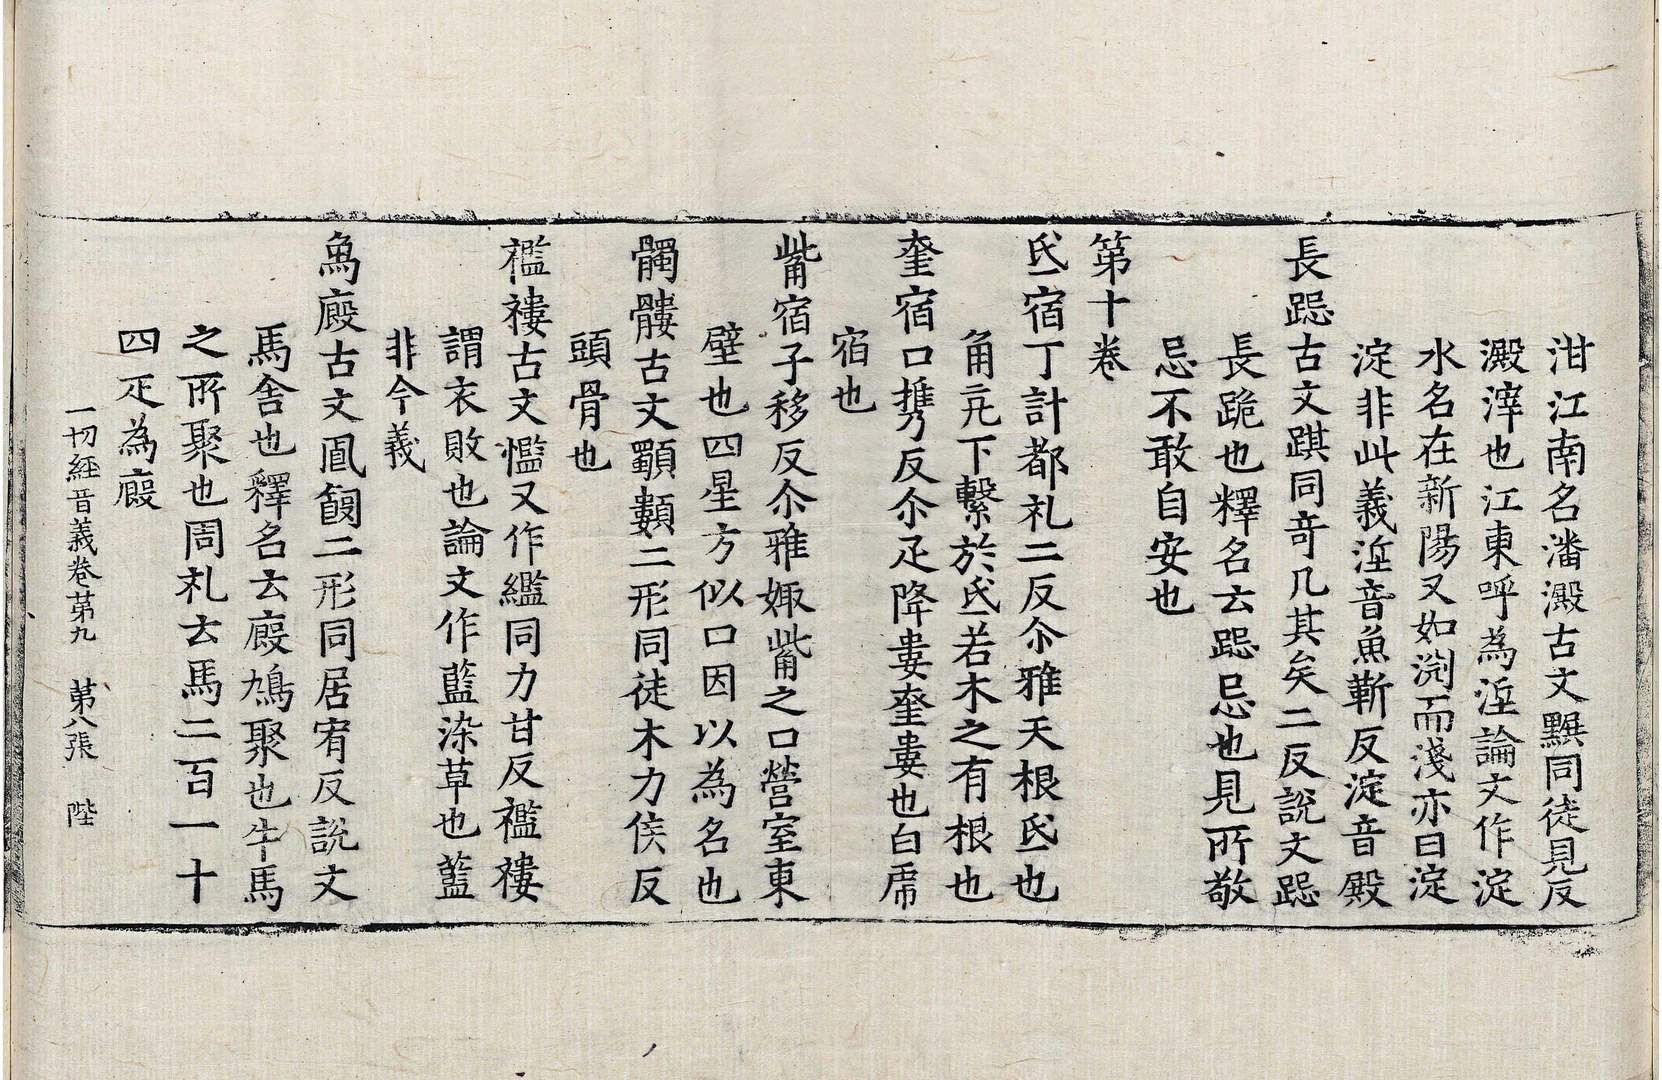 泔江南名潘澱古文黰同徒見反
澱滓也江東呼為埿論文作淀淀
水名在新陽又如渕而淺亦曰淀
淀非此義埿音魚靳反淀音殿
長跽古文䠏同竒几其矣二反說文跽
長跪也釋名云跽忌也見所敬
忌不敢自安也
第十卷
氐宿丁計都礼二反尒雅天根氐也
角亢下繫於氐若木之有根也
奎宿口携反尒疋降婁奎婁也白虎
宿也
觜宿子移反尒雅娵觜之口營室東
壁也四星方似口因以為名也
髑髏古文顝䫫二形同徒木力侯反
頭骨也
襤褸古文㦨又作繿同力甘反襤褸
謂衣敗也論文作藍染草也藍
非今義
為廄古文㔳䬨二形同居宥反說文
馬舍也釋名云廄鳩聚也牛馬
之所聚也周礼云馬二百一十
四疋為廄
一切經音義卷苐九 苐八張 陛